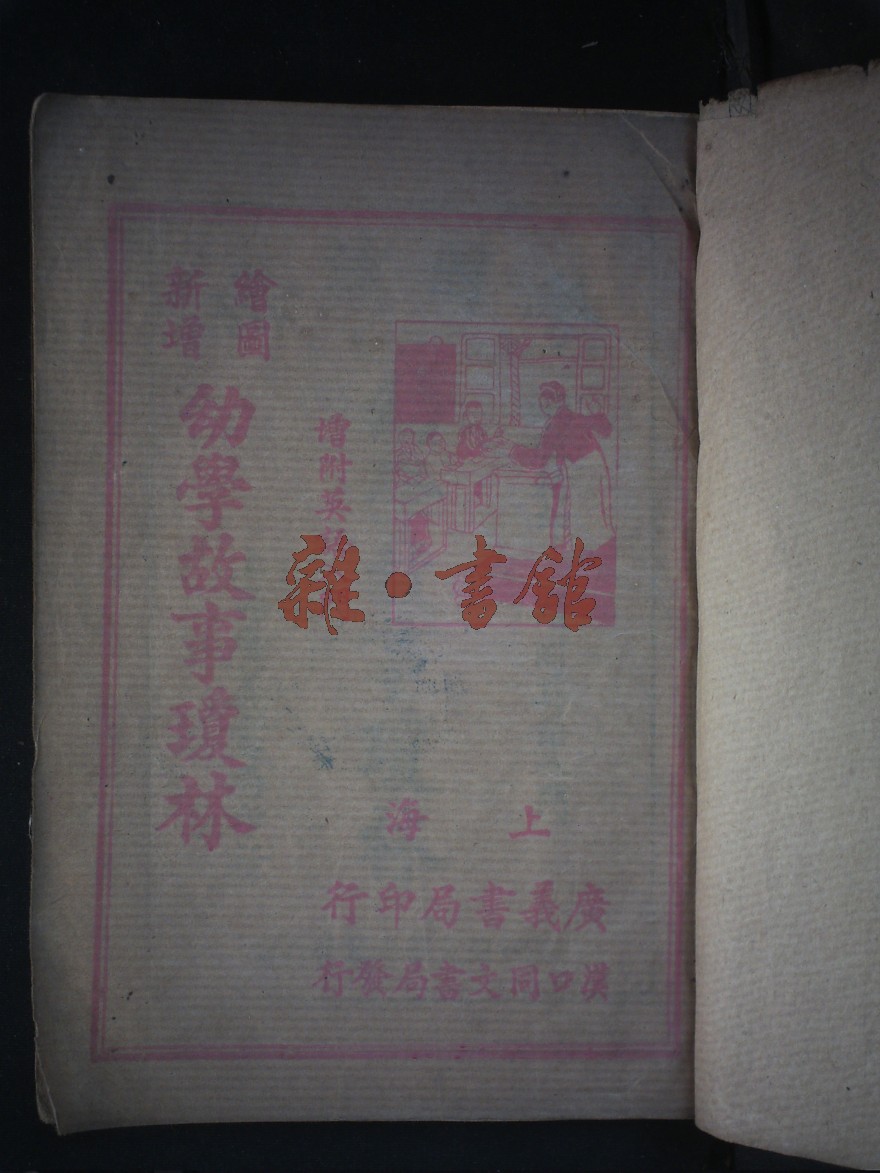 繪圖
新增
幼學故事瓊林
增附英
雜·書館
上海
廣義書局印行
漢口同文書局發行